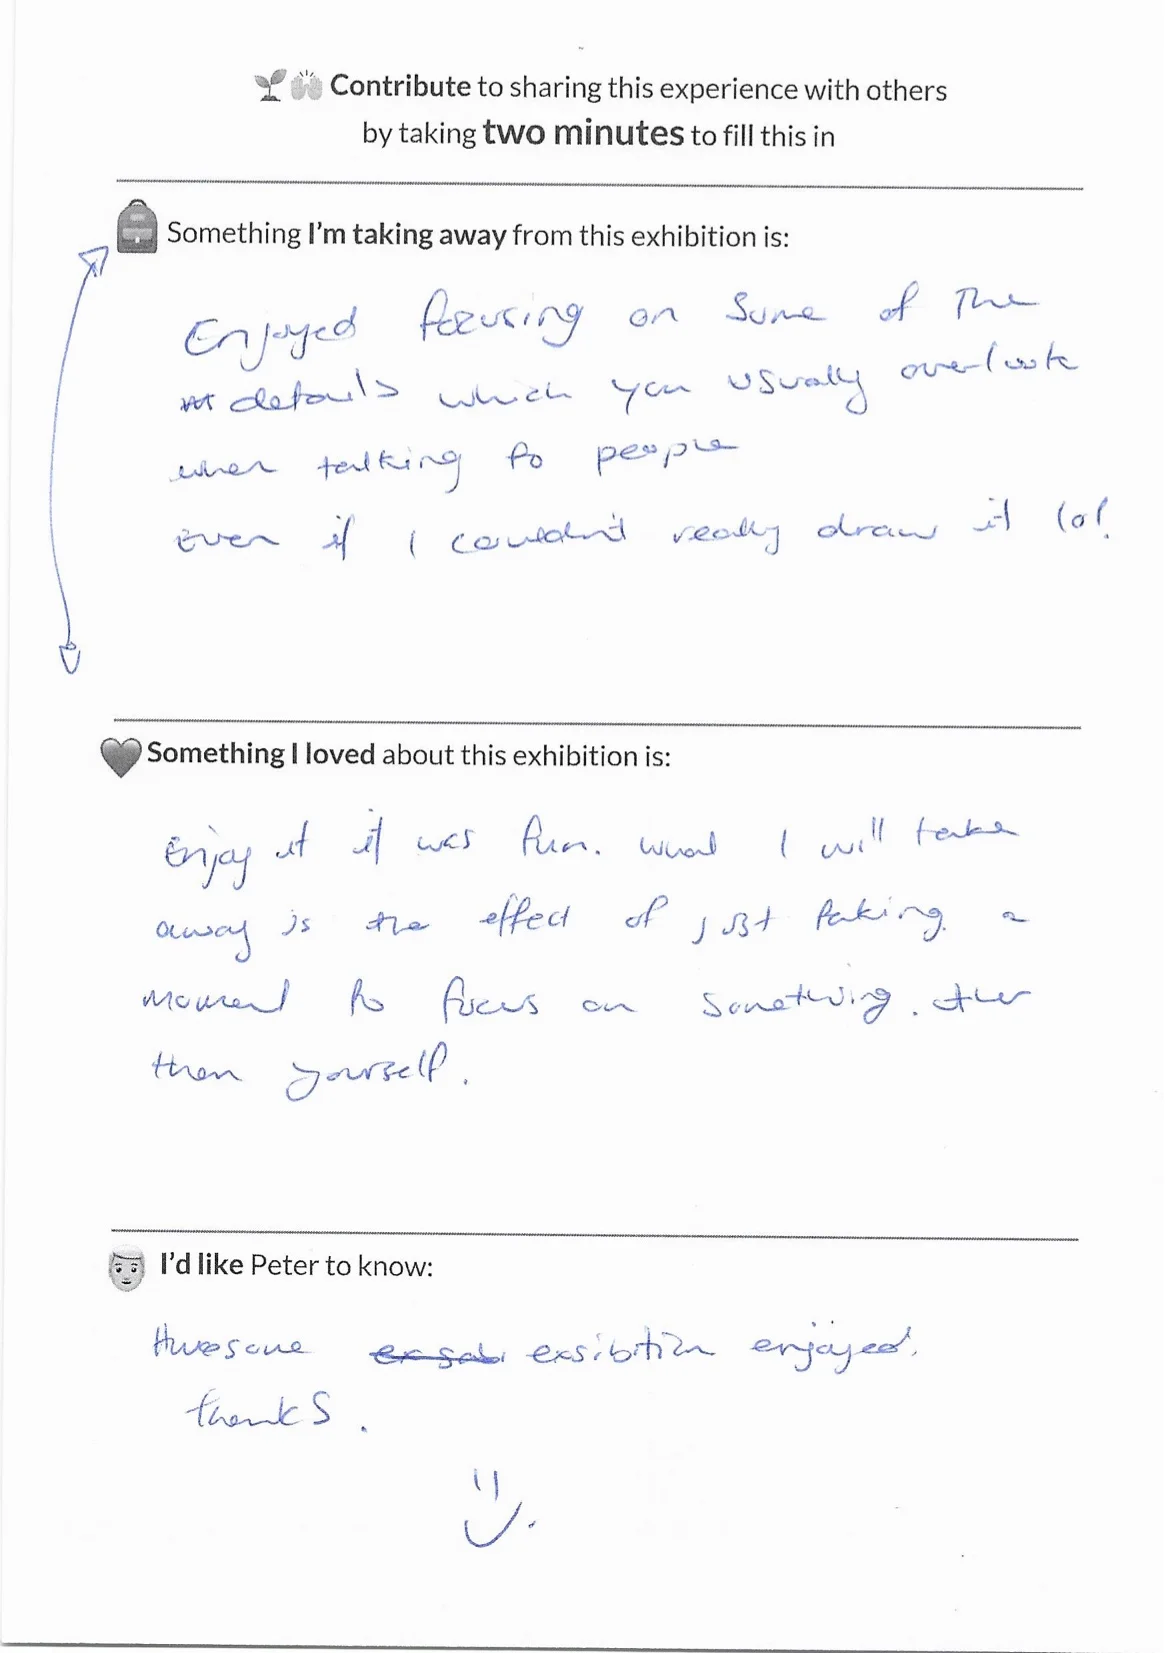 Contribute to sharing this experience with others
by taking two minutes to fill this in
Something I'm taking away from this exhibition is:
Enjoyed focusing on some of the
details which you usually overlook
when talking to people
Even if I couldn't really draw it lol.
Something I loved about this exhibition is:
Enjoy it it was fun. what I will take
away is the effect of just taking a
moment to focus on something other
then yourself.
I'd like Peter to know:
Awesome exsibition enjoyed.
thanks.